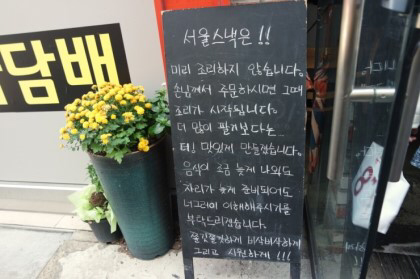 담배
서울스낵은 !!
미리 조리하지 않습니다.
손님께서 주문하시면 그때
조리가 시작됩니다.
더 많이 팔기보다는
더 맛있게 만들겠습니다.
음식이 조금 늦게 나와도
자리가 늦게 준비되어도
너그러이 이해해주시기를
부탁드리겠습니다.
쫄깃쫄깃하게 바삭바삭하게
그리고 시원하게 !!!